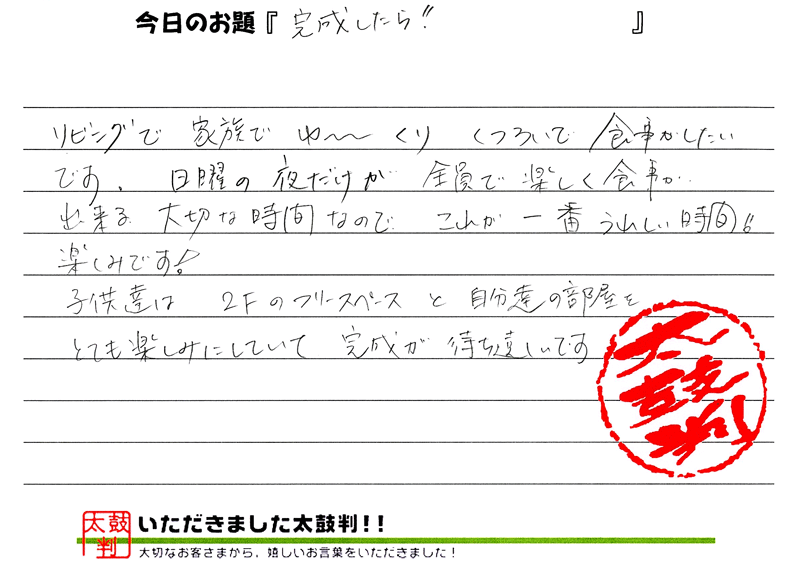 今日のお題『完成したら!!』
リビングで 家族で ゆ〜〜っくり くつろいで 食事がしたい
です。日曜の夜だけが 全員で楽しく食事が
出来る 大切な時間なので これが 一番うれしい時間!!
楽しみです!
子供達は 2Fのフリースペースと 自分達の部屋を
とても楽しみにしていて 完成が 待ち遠しいです
太
鼓
判
太鼓
判
いただきました太鼓判!!
大切なお客さまから、嬉しいお言葉をいただきました!